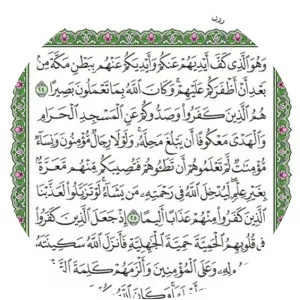 وَهُوَ ٱلَّذِى كَفَّ أَيْدِيَهُمْ عَنكُمْ وَأَيْدِيَكُمْ عَنْهُم بِبَطْنِ مَكَّةَ مِنۢ
بَعْدِ أَنْ أَظْفَرَكُمْ عَلَيْهِمْ وَكَانَ ٱللَّهُ بِمَا تَعْمَلُونَ بَصِيرًا ٢٤
هُمُ ٱلَّذِينَ كَفَرُوا۟ وَصَدُّوكُمْ عَنِ ٱلْمَسْجِدِ ٱلْحَرَامِ
وَٱلْهَدْىَ مَعْكُوفًا أَن يَبْلُغَ مَحِلَّهُۥ وَلَوْلَا رِجَالٌ مُّؤْمِنُونَ وَنِسَآءٌ
مُّؤْمِنَٰتٌ لَّمْ تَعْلَمُوهُمْ أَن تَطَـُٔوهُمْ فَتُصِيبَكُم مِّنْهُم مَّعَرَّةٌۢ
بِغَيْرِ عِلْمٍ لِّيُدْخِلَ ٱللَّهُ فِى رَحْمَتِهِۦ مَن يَشَآءُ لَوْ تَزَيَّلُوا۟ لَعَذَّبْنَا
ٱلَّذِينَ كَفَرُوا۟ مِنْهُمْ عَذَابًا أَلِيمًا ٢٥ إِذْ جَعَلَ ٱلَّذِينَ كَفَرُوا۟
فِى قُلُوبِهِمُ ٱلْحَمِيَّةَ حَمِيَّةَ ٱلْجَٰهِلِيَّةِ فَأَنزَلَ ٱللَّهُ سَكِينَتَهُۥ
وَعَلَى ٱلْمُؤْمِنِينَ وَأَلْزَمَهُمْ كَلِمَةَ
وَكَانَ ٱللَّهُ